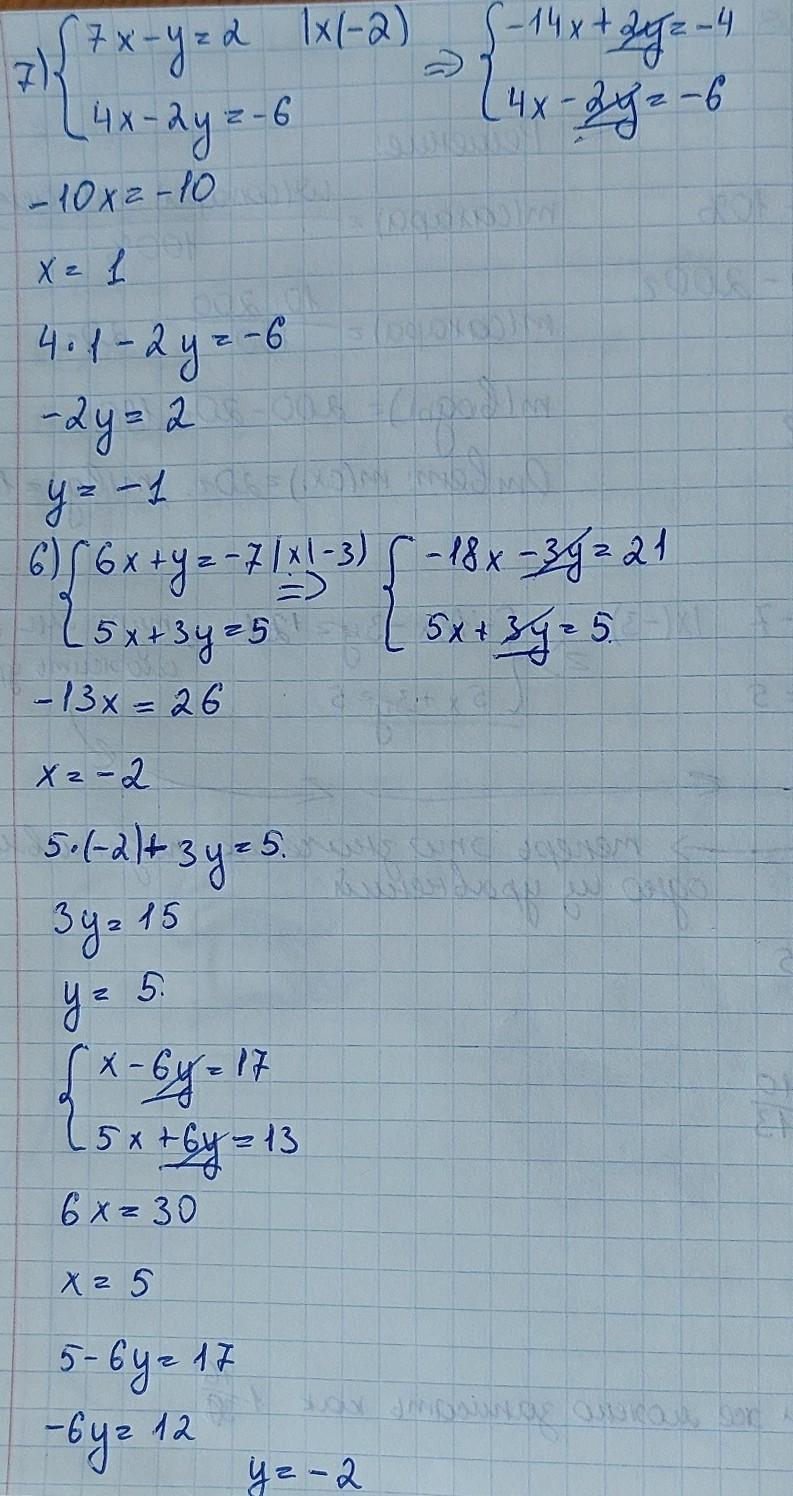 7) { 7x - y = 2 | x(-2) ⇒ { -14x + 2y = -4
4x - 2y = -6 4x - 2y = -6
-10x = -10
x = 1
4·1 - 2y = -6
-2y = 2
y = -1
6) { 6x + y = -7 | x(-3) ⇒ { -18x - 3y = 21
5x + 3y = 5 5x + 3y = 5.
-13x = 26
x = -2
5·(-2) + 3y = 5.
3y = 15
y = 5.
{ x - 6y = 17
5x + 6y = 13
6x = 30
x = 5
5 - 6y = 17
-6y = 12
y = -2